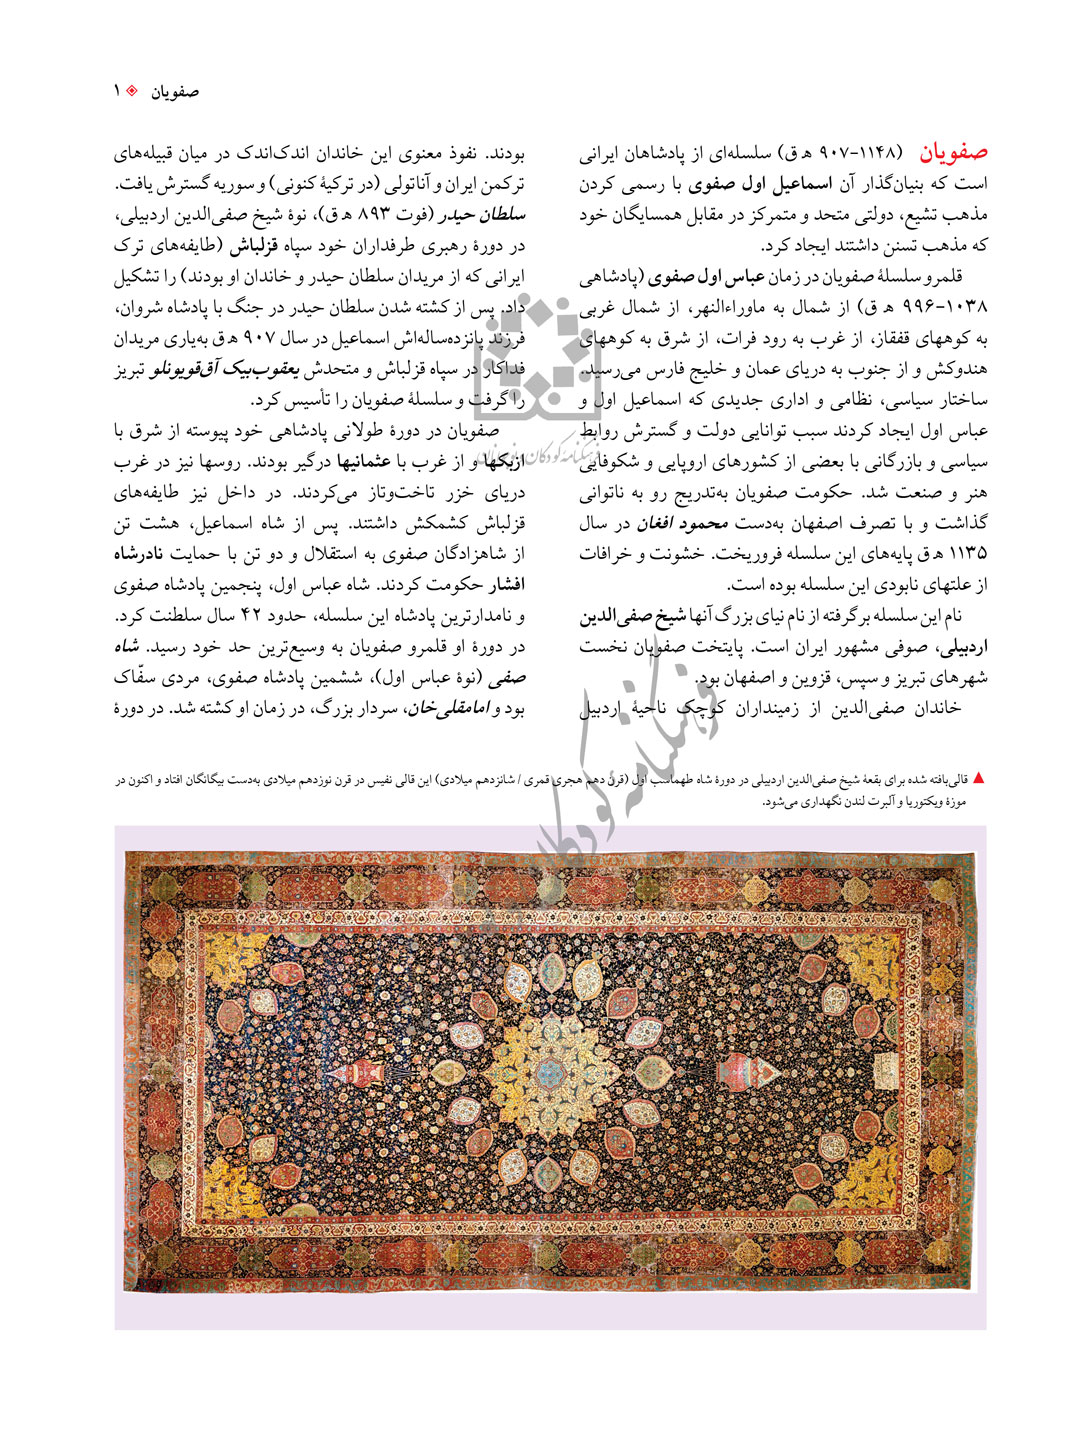 صفویان ۱
صفویان (۱۱۴۸-۹۰۷ ه‍ ق) سلسله‌ای از پادشاهان ایرانی
است که بنیان‌گذار آن اسماعیل اول صفوی با رسمی کردن
مذهب تشیع، دولتی متحد و متمرکز در مقابل همسایگان خود
که مذهب تسنن داشتند ایجاد کرد.
قلمرو سلسلهٔ صفویان در زمان عباس اول صفوی (پادشاهی
۱۰۳۸-۹۹۶ ه‍ ق) از شمال به ماوراءالنهر، از شمال غربی
به کوههای قفقاز، از غرب به رود فرات، از شرق به کوههای
هندوکش و از جنوب به دریای عمان و خلیج فارس می‌رسید.
ساختار سیاسی، نظامی و اداری جدیدی که اسماعیل اول و
عباس اول ایجاد کردند سبب توانایی دولت و گسترش روابط
سیاسی و بازرگانی با بعضی از کشورهای اروپایی و شکوفایی
هنر و صنعت شد. حکومت صفویان به‌تدریج رو به ناتوانی
گذاشت و با تصرف اصفهان به‌دست محمود افغان در سال
۱۱۳۵ ه‍ ق پایه‌های این سلسله فروریخت. خشونت و خرافات
از علتهای نابودی این سلسله بوده است.
نام این سلسله برگرفته از نام نیای بزرگ آنها شیخ صفی‌الدین
اردبیلی، صوفی مشهور ایران است. پایتخت صفویان نخست
شهرهای تبریز و سپس، قزوین و اصفهان بود.
خاندان صفی‌الدین از زمینداران کوچک ناحیهٔ اردبیل
بودند. نفوذ معنوی این خاندان اندک‌اندک در میان قبیله‌های
ترکمن ایران و آناتولی (در ترکیهٔ کنونی) و سوریه گسترش یافت.
سلطان حیدر (فوت ۸۹۳ ه‍ ق)، نوهٔ شیخ صفی‌الدین اردبیلی،
در دورهٔ رهبری طرفداران خود سپاه قزلباش (طایفه‌های ترک
ایرانی که از مریدان سلطان حیدر و خاندان او بودند) را تشکیل
داد. پس از کشته شدن سلطان حیدر در جنگ با پادشاه شروان،
فرزند پانزده‌ساله‌اش اسماعیل در سال ۹۰۷ ه‍ ق به‌یاری مریدان
فداکار در سپاه قزلباش و متحدش یعقوب‌بیک آق‌قویونلو تبریز
را گرفت و سلسلهٔ صفویان را تأسیس کرد.
صفویان در دورهٔ طولانی پادشاهی خود پیوسته از شرق با
ازبکها و از غرب با عثمانیها درگیر بودند. روسها نیز در غرب
دریای خزر تاخت‌وتاز می‌کردند. در داخل نیز طایفه‌های
قزلباش کشمکش داشتند. پس از شاه اسماعیل، هشت تن
از شاهزادگان صفوی به استقلال و دو تن با حمایت نادرشاه
افشار حکومت کردند. شاه عباس اول، پنجمین پادشاه صفوی
و نامدارترین پادشاه این سلسله، حدود ۴۲ سال سلطنت کرد.
در دورهٔ او قلمرو صفویان به وسیع‌ترین حد خود رسید. شاه
صفی (نوهٔ عباس اول)، ششمین پادشاه صفوی، مردی سفّاک
بود و امامقلی‌خان، سردار بزرگ، در زمان او کشته شد. در دورهٔ
قالی‌بافته شده برای بقعهٔ شیخ صفی‌الدین اردبیلی در دورهٔ شاه طهماسب اول (قرن دهم هجری قمری / شانزدهم میلادی) این قالی نفیس در قرن نوزدهم میلادی به‌دست بیگانگان افتاد و اکنون در
موزهٔ ویکتوریا و آلبرت لندن نگهداری می‌شود.